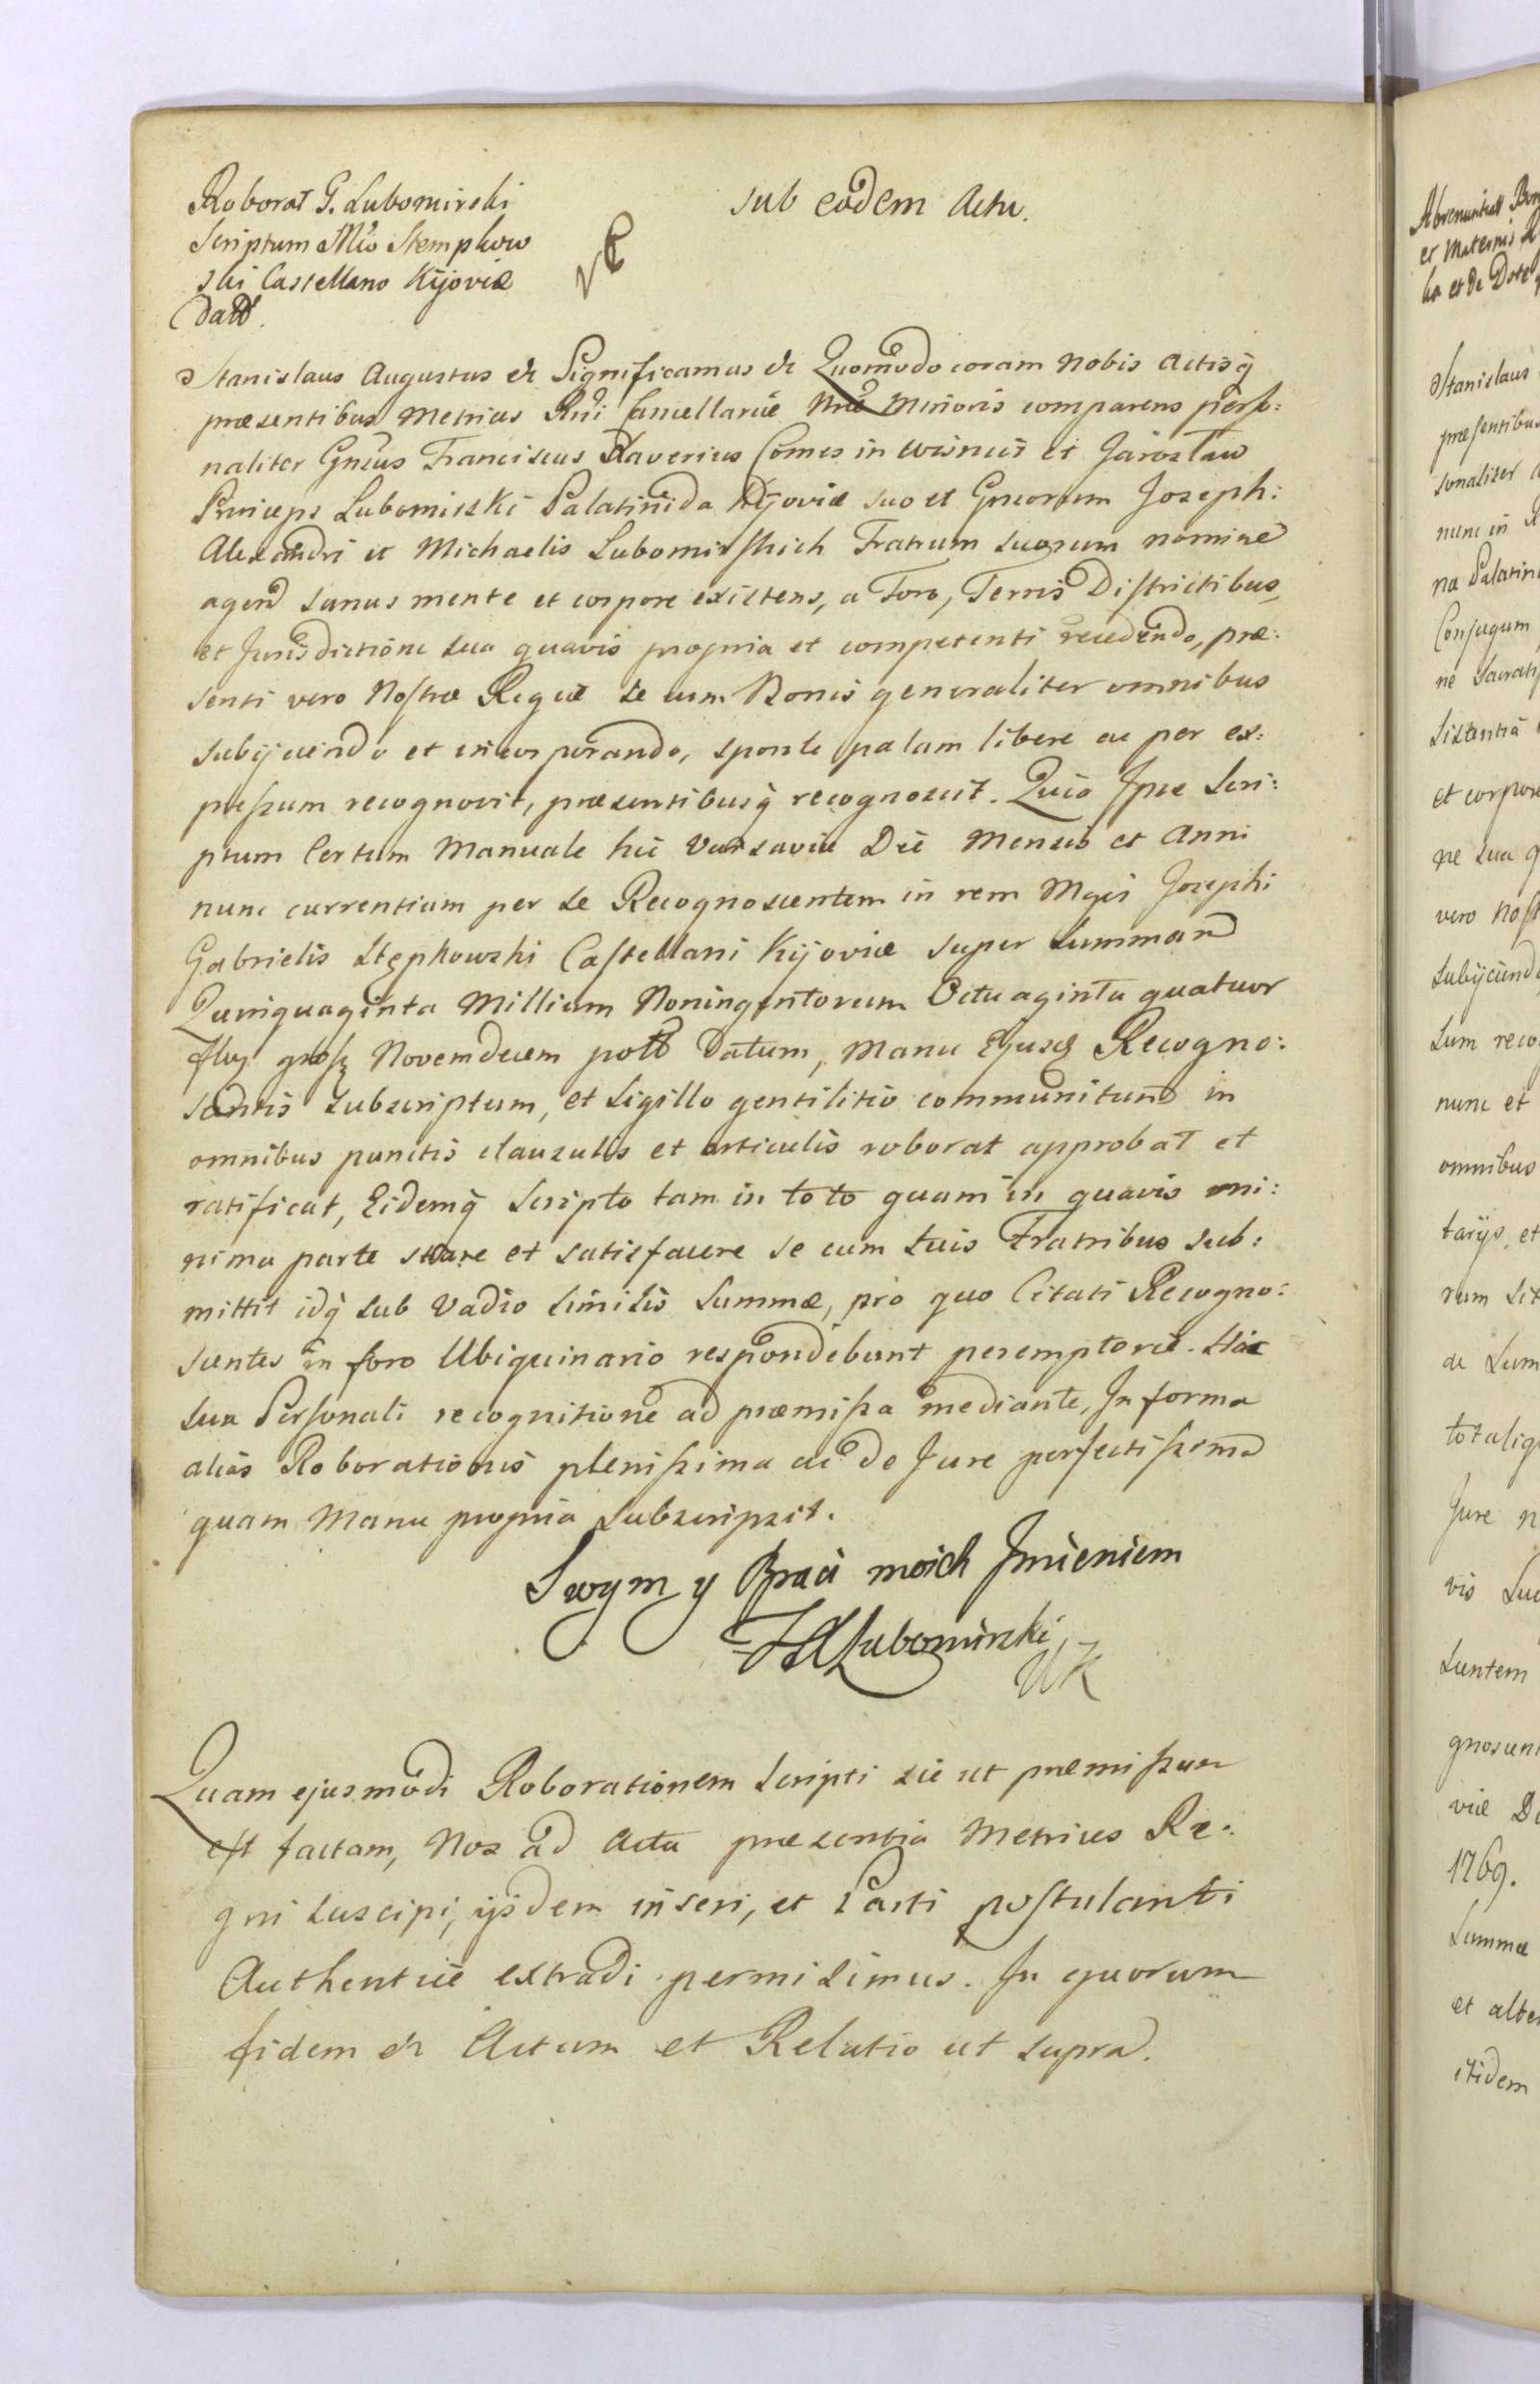 Roborat G. Lubomirski
Scriptum Mco Stempkow
ski Castellano Kijoviæ
datt.
sub eodem Actu.
Stanislaus Augustus etc Significamus etc Quomodo coram Nobis Actisq
præsentibus Metrices Rni Cancellariæ Nræ Minoris comparens perso:
naliter Gnsus Franciscus Xaverius Comes in Wisnicz et Jarosław
Princeps Lubomirski Palatinida Kijoviæ suo et Gnsorum Joseph:
Alexandri et Michaelis Lubomirskich Fratrum suorum nomine
agend sanus mente et corpore existens, a Foro, Terris Districtibus,
et Jurisdictione sua quavis propria et competenti recedendo, præ:
senti vero Nostræ Regiæ se cum Bonis generaliter omnibus
subijciendo et incorporando, sponte palam libere ac per ex:
pressum recognovit, præsentibusq recognoscit. Quia Ipse Scri:
ptum Certum Manuale hic Varsaviæ Die Mensis et Anni
nunc currentium per se Recognoscentem in rem Mgci Josephi
Gabrielis Stępkowski Castellani Kijoviæ super Summam
Quinquaginta Millium Noningentorum Octuaginta quatuor
flor gross Novemdecem poll Datum, Manu Ejusd Recogno:
scentis subscriptum, et Sigillo gentilitio communitum in
omnibus punctis clausulis et articulis roborat approbat et
ratificat, Eidemq Scripto tam in toto quam in quavis mi:
nima parte stare et satisfacere se cum suis Fratribus sub:
mittit idq sub Vadio similis Summæ, pro quo Citati Recogno:
scentes in foro Ubiquinario respondebunt peremptorie. Hac
sua Personali recognitione ad præmissa mediante, In forma
alias Roborationis plenissima ac de Jure perfectissima
quam Manu propria subscripsit.
Swym y Braci moich Jmieniem
FXLubomirski
WK
Quam ejusmodi Roborationem Scripti sic ut præmissum
est factam, Nos ad Acta præsentia Metrices Re:
gni suscipi, ijsdem inseri, et Parti postulanti
Authentice extradi permisimus. In quorum
fidem etc Actum et Relatio ut supra.
Stanislaus
nunc in
Conjugum
et corpore
ne sua
vero
nunc et
omnibus
tarijs, et
1769.
Summæ
itidem